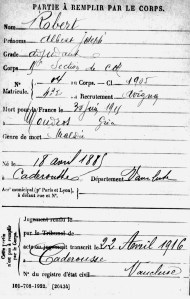 PARTIE À REMPLIR PAR LE CORPS.
Nom Robert
Prénoms Albert Joseph
Grade
Corps Section de
N° 04 au Corps. — Cl 1905
Matricule. 472 au Recrutement Avignon
Mort pour la France le 29 juin 1915
à Moudros
Genre de mort Maladie
Né le 18 avril 1885
à Caderousse Département Vaucluse
Arr' municipal (pr Paris et Lyon), à défaut rue et N°.
Cette partie n'est pas à remplir par le Corps.
Jugement rendu le
par le Tribunal de
acte ou jugement transcrit le 22 Avril 1916
à Caderousse
Vaucluse
N° du registre d'état civil